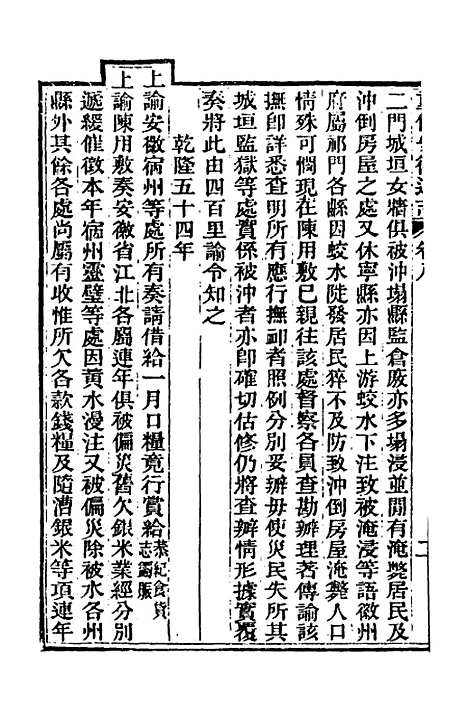 二門城垣女牆俱被沖塌縣監倉廒亦多塌浸並間有淹斃居民及
沖倒房屋之處又休寧縣亦因上游蛟水下注致被淹浸等語徽州
府屬祁門各縣因蛟水陡發居民猝不及防致沖倒房屋淹斃人口
情殊可憫現在陳用敷已親往該處督察各員查勘辦理著傳諭該
撫卽詳悉查明所有應行撫卹者照例分別妥辦毋使災民失所其
城垣監獄等處實係被沖者亦卽確切估修仍將查辦情形據實覆
奏將此由四百里諭令知之
乾隆五十四年
上諭安徽宿州等處所有奏請借給一月口糧竟行賞給恭紀食貨志蠲賑
上諭陳用敷奏安徽省江北各屬連年俱被偏災舊欠銀米業經分別
遞緩催徵本年宿州靈璧等處因黃水漫注又被偏災除被水各州
縣外其餘各處尚屬有收惟所欠各款錢糧及隨漕銀米等項連年
卷八
二